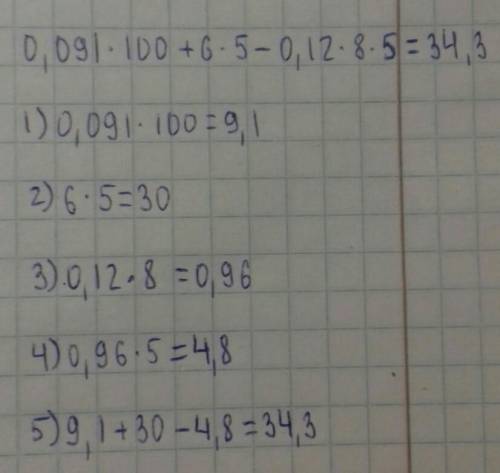 0,091·100+6·5-0,12·8·5=34,3
1) 0,091·100=9,1
2) 6·5=30
3) 0,12·8=0,96
4) 0,96·5=4,8
5) 9,1+30-4,8=34,3